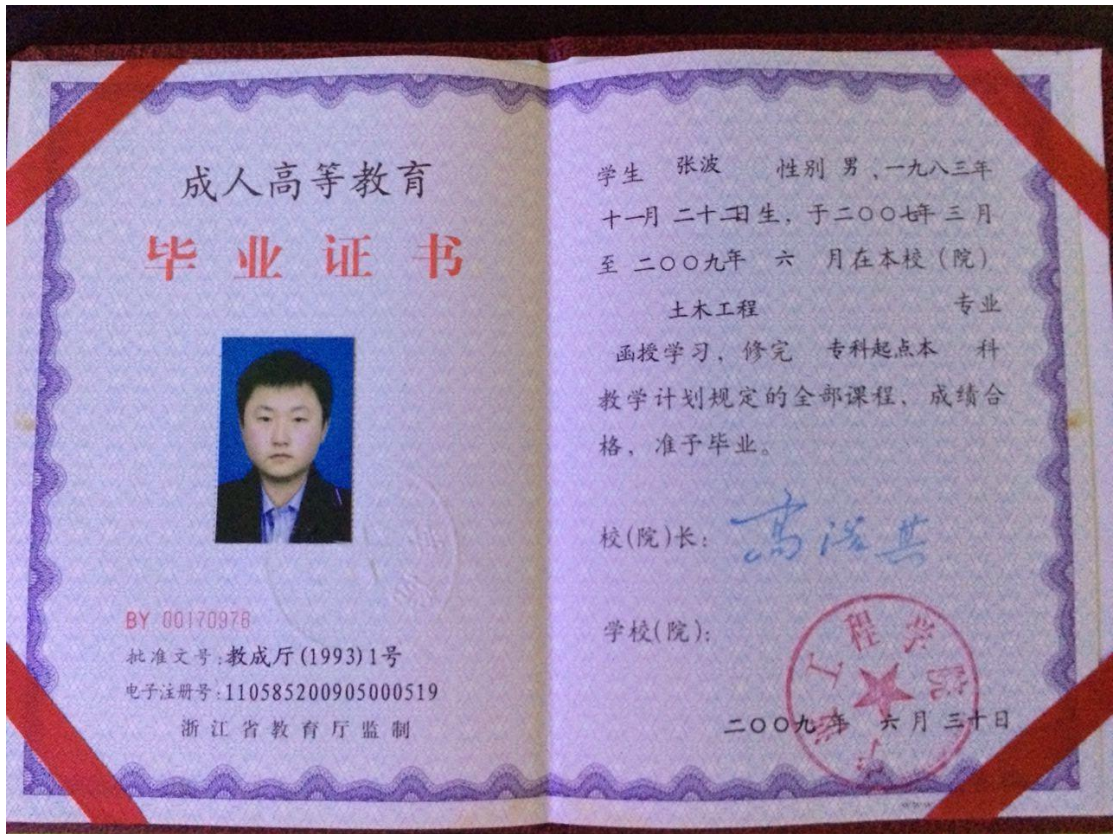 成人高等教育
毕业证书
BY 00170978
批准文号:教成厅(1993)1号
电子注册号:110585200905000519
浙江省教育厅监制
学生 张波 性别 男 ,一九八三年
十一月 二十二日生, 于二〇〇七年 三 月
至 二〇〇九年 六 月在本校(院)
土木工程 专业
函授学习, 修完 专科起点本 科
教学计划规定的全部课程, 成绩合
格, 准予毕业。
校(院)长: 高浩其
学校(院):
工程学院
二〇〇九年 六月 三十日